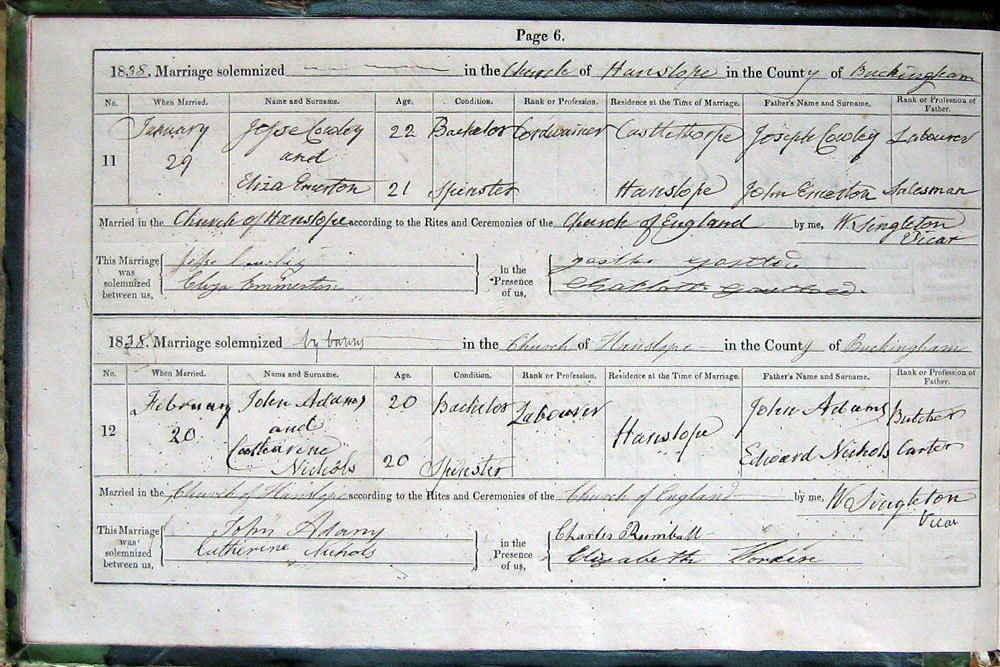 Page 6.
1838. Marriage solemnized in the Church of Hanslope in the County of Buckingham
No. When Married. Name and Surname. Age. Condition. Rank or Profession. Residence at the Time of Marriage. Father's Name and Surname. Rank or Profession of Father.
January Jesse Cowley 22 Bachelor Cordwainer Castlethorpe Joseph Cowley Labourer
11 29 and
Eliza Emerton 21 Spinster Hanslope John Emerton Salesman
Married in the Church of Hanslope according to the Rites and Ceremonies of the Church of England by me, W. Singleton
Vicar
This Marriage was solemnized between us, Jesse Cowley in the Presence of us,
Eliza Emmerton Charlotte
1838. Marriage solemnized by banns in the Church of Hanslope in the County of Buckingham
No. When Married. Name and Surname. Age. Condition. Rank or Profession. Residence at the Time of Marriage. Father's Name and Surname. Rank or Profession of Father.
February John Adams 20 Bachelor Labourer John Adams Butcher
12 20 and Hanslope
Catharine Nichols 20 Spinster Edward Nichols Carter
Married in the Church of Hanslope according to the Rites and Ceremonies of the Church of England by me, W Singleton
Vicar
This Marriage was solemnized between us, John Adams in the Presence of us, Charles Rumball
Catherine Nichols Elizabeth